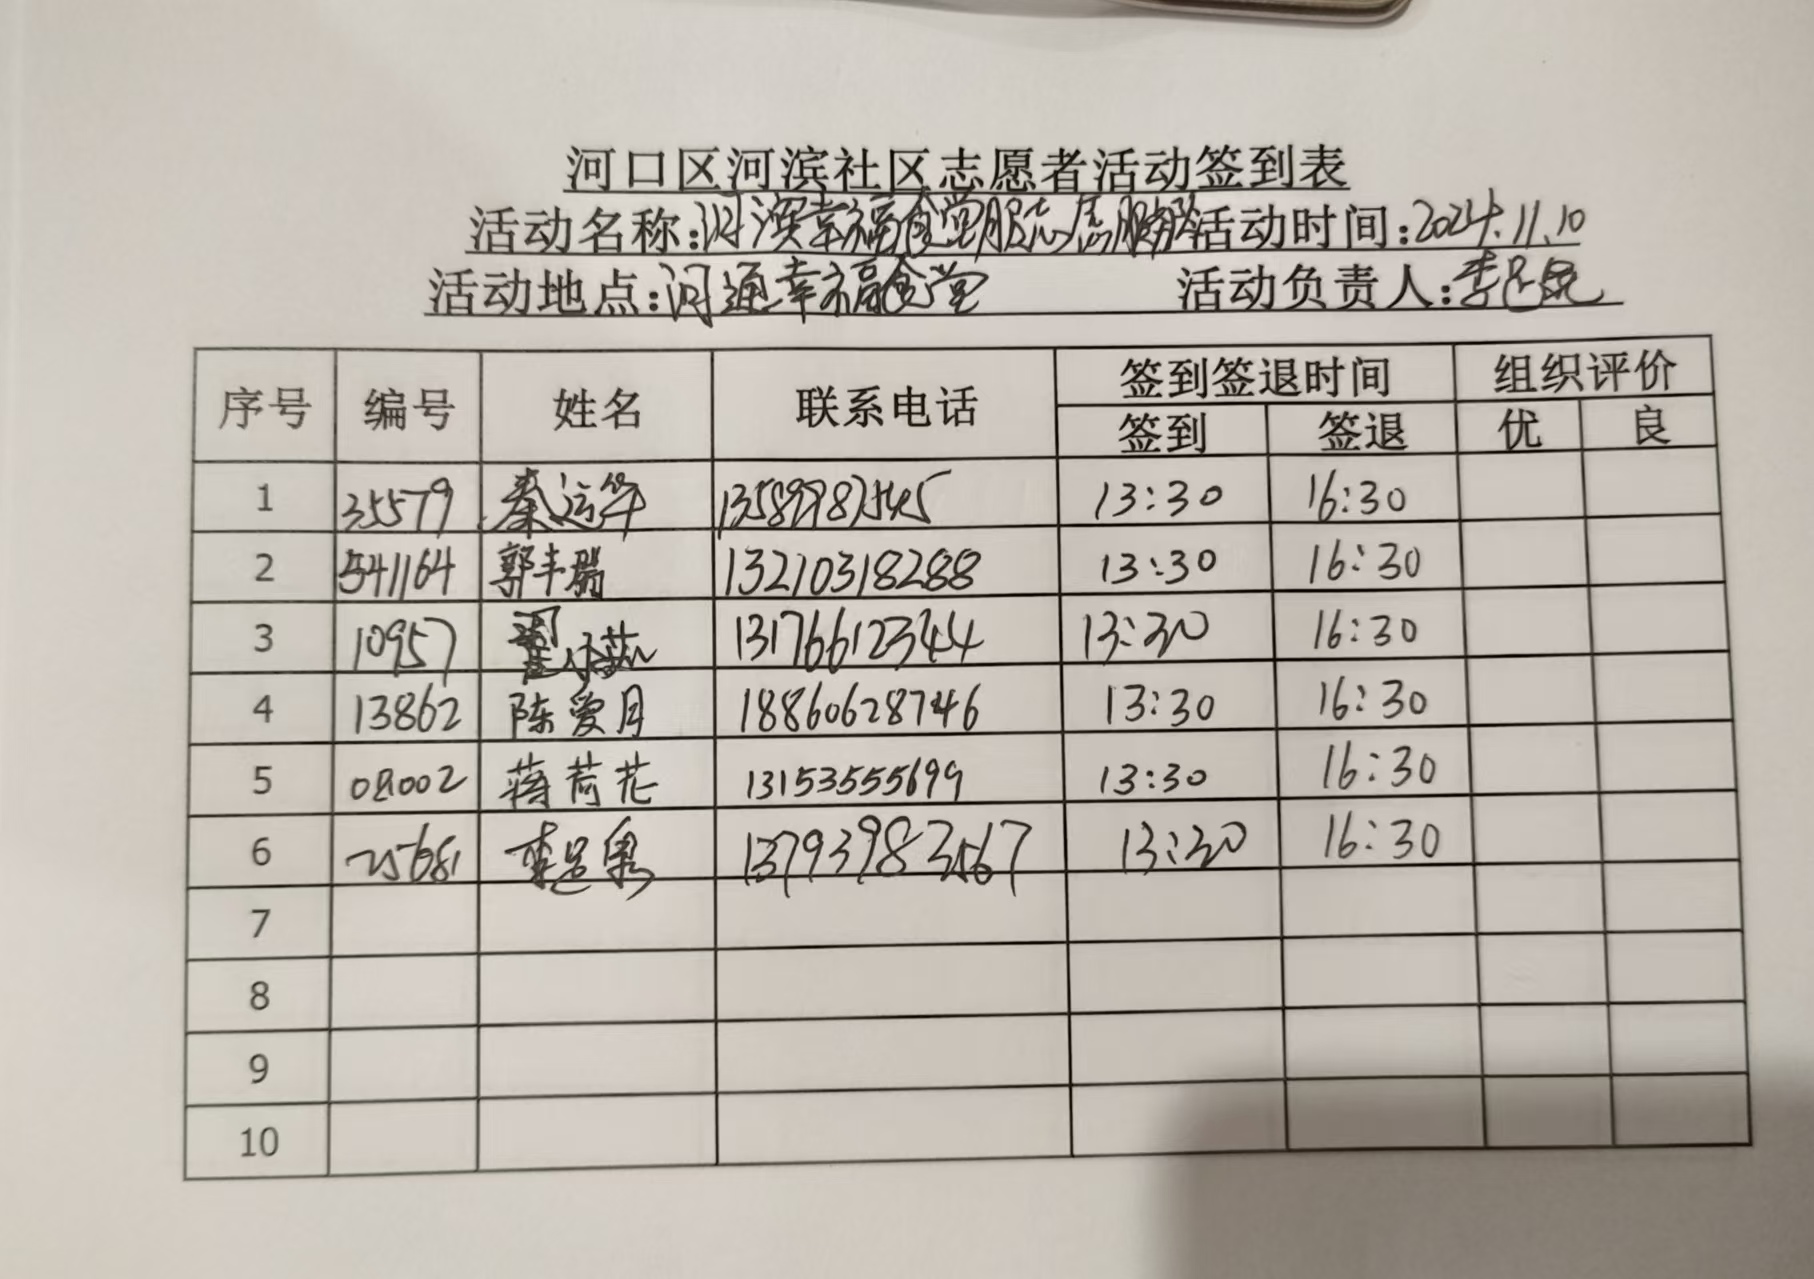 河口区河滨社区志愿者活动签到表
活动名称:河滨幸福食堂服志愿服务活动时间:2024.11.10
活动地点:河通幸福食堂 活动负责人:李
序号 编号 姓名 联系电话 签到签退时间 组织评价
签到 签退 优 良
1 35579 秦运华 13589987545 13:30 16:30
2 541164 郭丰瑞 13210318288 13:30 16:30
3 10957 翟 13176612344 13:30 16:30
4 13862 陈爱月 18860628746 13:30 16:30
5 08002 蒋荷花 13153555699 13:30 16:30
6 25681 李 13793983567 13:30 16:30
7
8
9
10